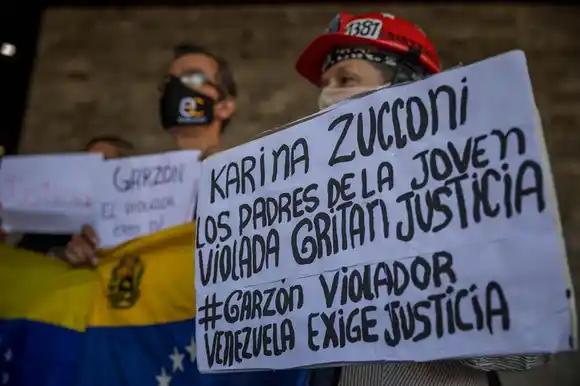 1387
GARZÓN
EL VIOLADOR
KARINA ZUCCONI
LOS PADRES DE LA JOVEN
VIOLADA GRITAN JUSTICIA
#GARZÓN VIOLADOR
VENEZUELA EXIGE JUSTICIA